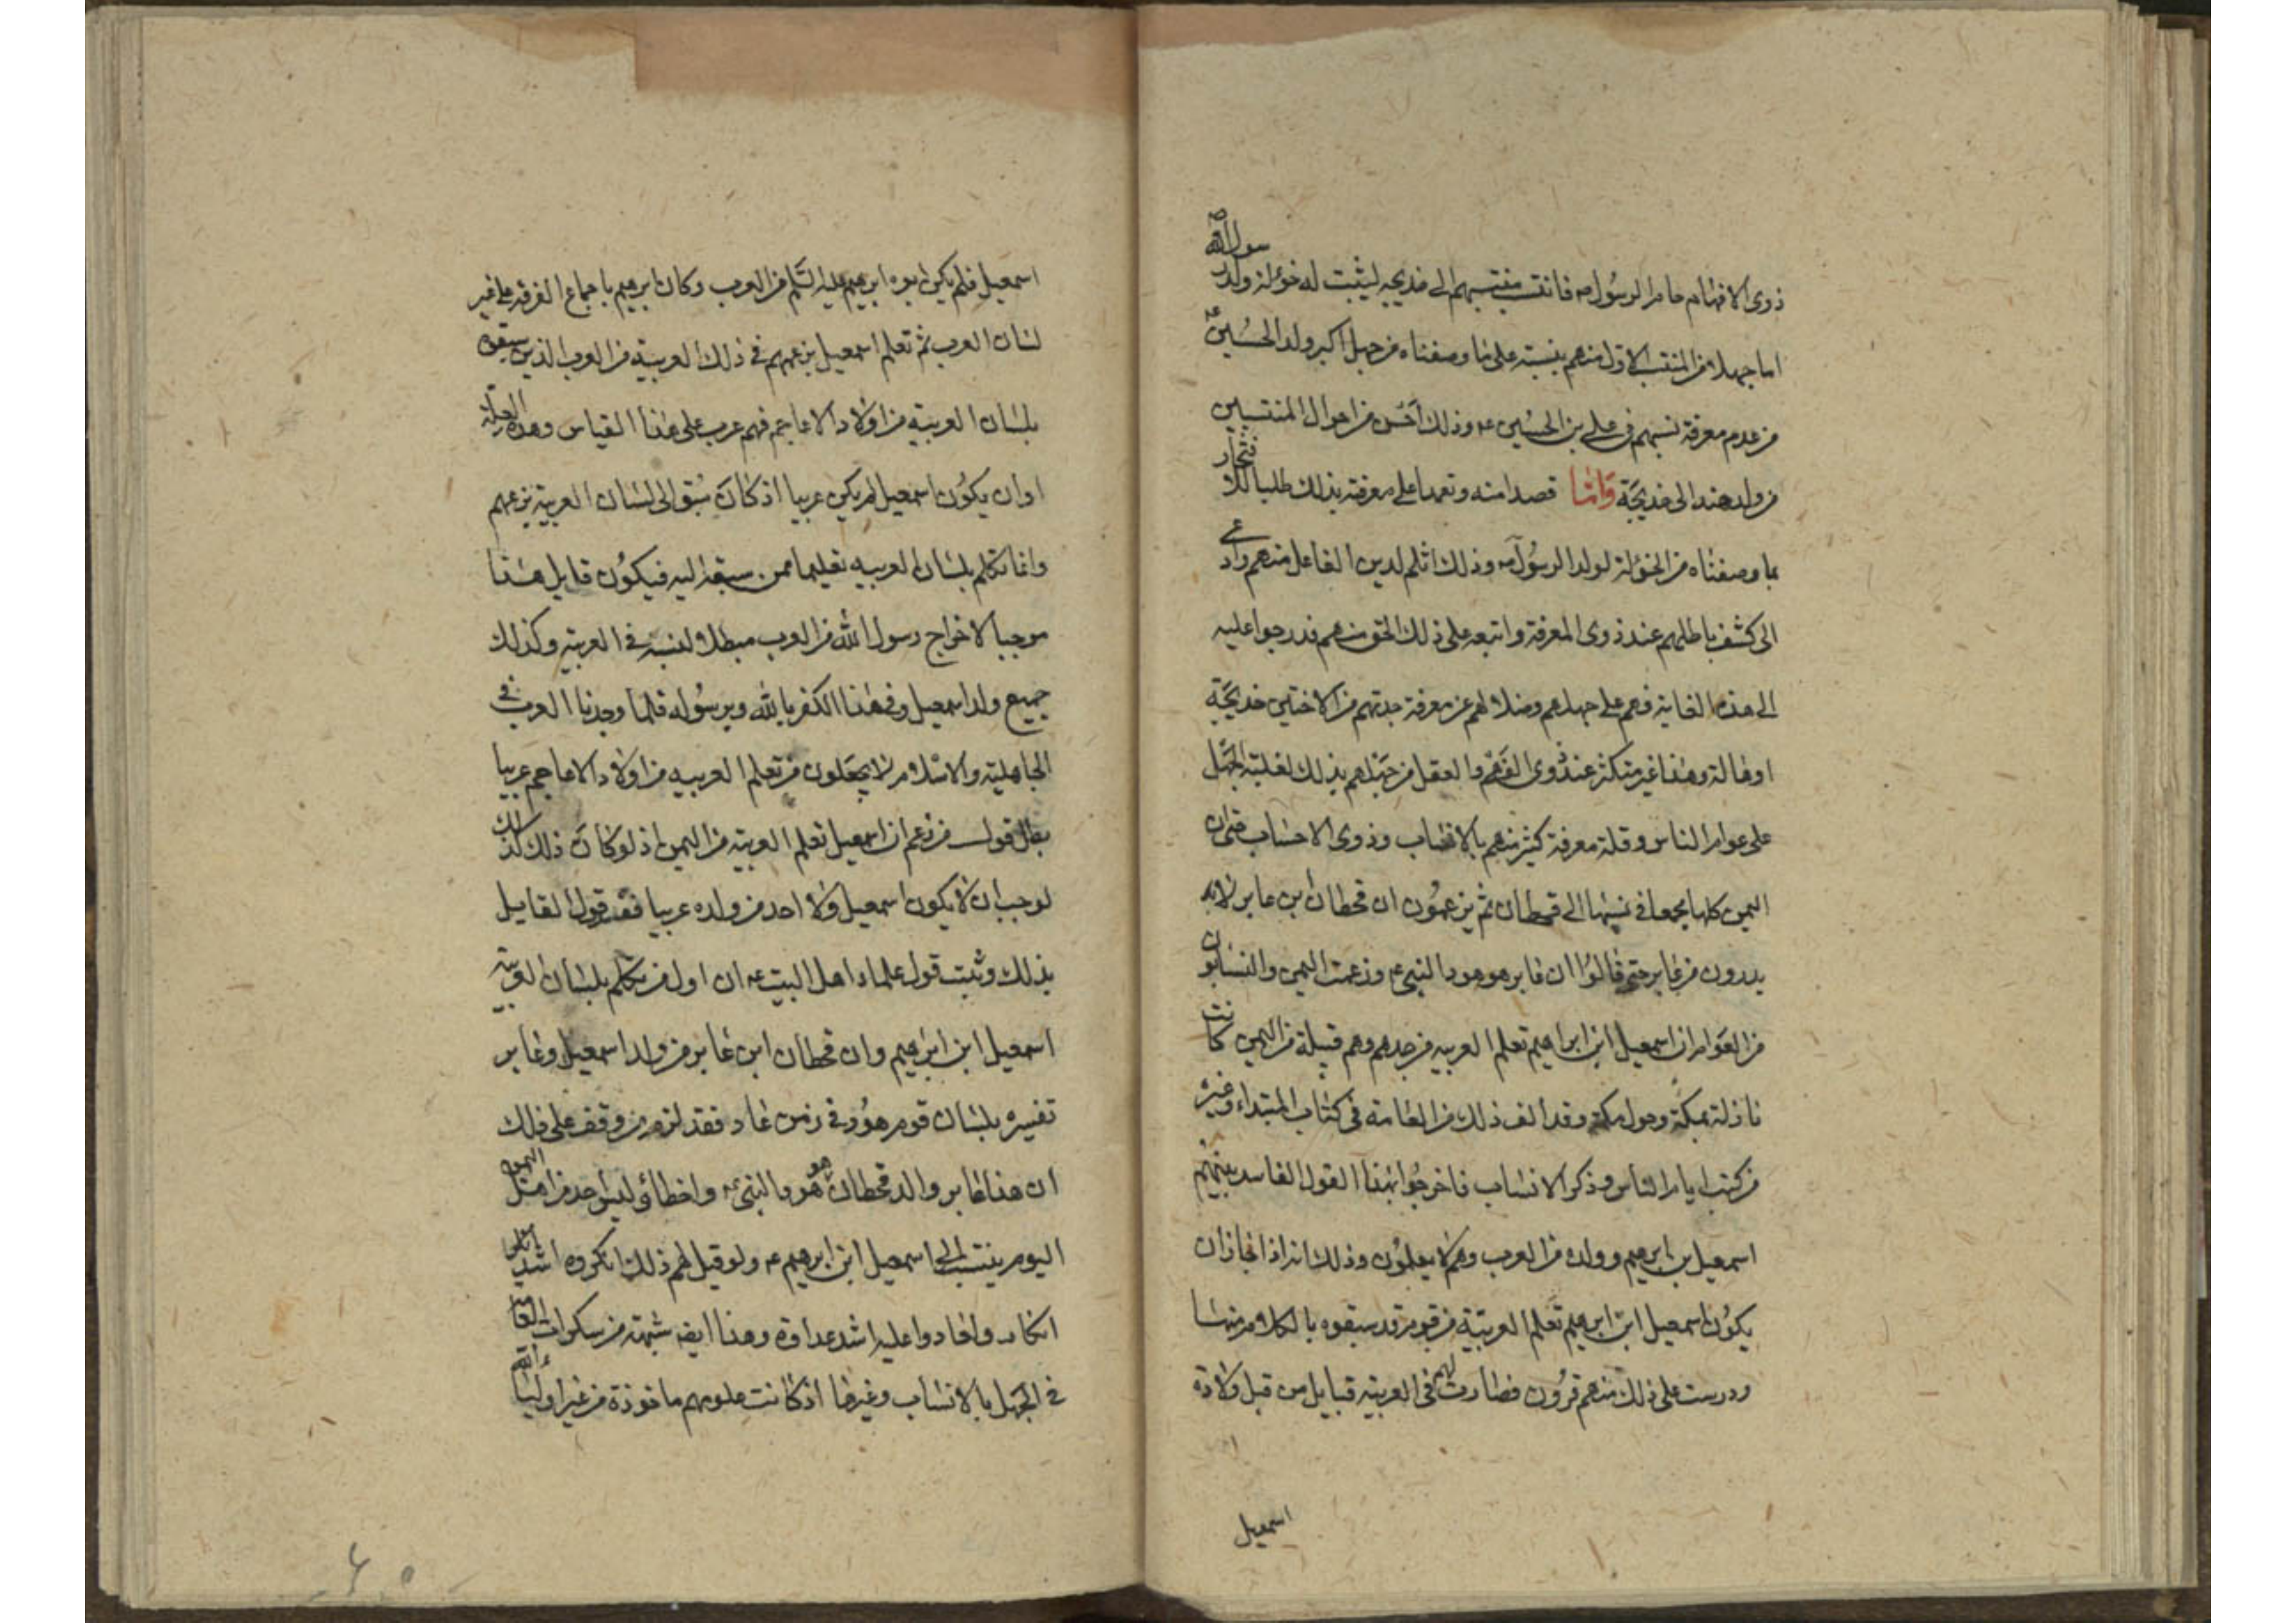 ذوى الافهام حامل الرسول صه فانتسب منتسبهم الى خديجه ليثبت له خؤلة ولد رسول الله ص
اما جهلا من المنتسب الاول منهم بنسبته على ما وصفناه من جهل اكبر ولد الحسين ع
من عدم معرفة نسبهم فى على بن الحسين ع وذلك اخس من احوال المنتسبين
من ولد هند الى خديجة واما قصدا منه وتعمدا على معرفته بذلك طلبا للافتخار
بما وصفناه من الخؤلة لولد الرسول ص وذلك اثلم لدين الفاعل منهم وادعى
الى كشف باطلهم عند ذوى المعرفة واتبعه على ذلك الحق منهم فدرجوا عليه
الى هذه الغاية فهم على جهلهم وضلالهم عن معرفة جدتهم من الاختين خديجة
او هالة وهذا غير متكثر عند ذوى الفهم والعقل من جهلهم بذلك لغلبة الجهل
على عوام الناس وقلة معرفة كثير منهم بالانساب وذوى الاحساب حتى ان
اليمن كلها يجمعا فى نسبها الى قحطان ثم يزعمون ان قحطان بن عابر لا
يدرون من عابر حتى قالوا ان عابر هو هود النبى ع وزعمت اليمن والنسابون
من العوام ان اسمعيل ابن ابراهيم تعلم العربيه من جرهم وهم قبيلة من اليمن كانت
نازلة بمكة وحول مكة وقد الف ذلك من العامة فى كتاب المبتداء وغيره
من كتب ايام الناس وذكر الانساب فاخرجوا بهذا القول الفاسد
اسمعيل بن ابرهيم وولده من العرب وهم لا يعلمون وذلك انه اذا جاز ان
يكون اسمعيل ابن ابرهيم تعلم العربيّة من قوم قد سبقوه بالكلام منها
ودرست على ذلك منهم قرون فصارت لهم فى العربيه قبايل من قبل ولادة
اسمعيل
اسمعيل فلم يكن ابوه ابرهيم عليه السّلم من العرب وكان ابرهيم باجماع الفرقه على غير
لسان العرب ثم تعلم اسمعيل بزعمهم فى ذلك العربيّة من العرب الذين سبقوه
بلسان العربيّة من اولاد الاعاجم فهم عرب على هذا القياس وهذه
او ان يكون اسمعيل لم يكن عربيا اذ كان سبق الى لسان العربية بزعمهم
وانما تكلم بلسان العربيه تعليما ممن سبقه اليه فيكون قايل هذا
موجبا لاخراج رسول الله من العرب مبطلا لنسبه فى العربيّة وكذلك
جميع ولد اسمعيل وفى هذا الكفر بالله وبرسوله فلما وجدنا العرب فى
الجاهلية والاسلام لا يجعلون من تعلم العربيه من اولاد الاعاجم عربيا
بطل قول من زعم ان اسمعيل تعلم العربيّه من اليمن اذ لو كان ذلك كذلك
لوجب ان لا يكون اسمعيل ولا احد من ولده عربيا فسد قول القايل
بذلك وثبت قول علماء اهل البيت ع ان اول من تكلم بلسان العربية
اسمعيل ابن ابرهيم وان قحطان ابن عابر من ولد اسمعيل وعابر
تفسيره بلسان قوم هود فى زمن عاد فقد لزم من وقف على ذلك
ان هذا عابر والد قحطان هو هود النبى ع واخطائ ليس احد من اهل اليمن
اليوم ينتسب الى اسمعيل ابن ابرهيم ع ولو قيل لهم ذلك انكروه اشد
انكار وعادوا عليه اشد عداوة وهذا ايضا شبهة من سكرات العامة
فى الجهل بالانساب وغيرها اذ كانت علومهم ماخوذة من غير اولياء الله